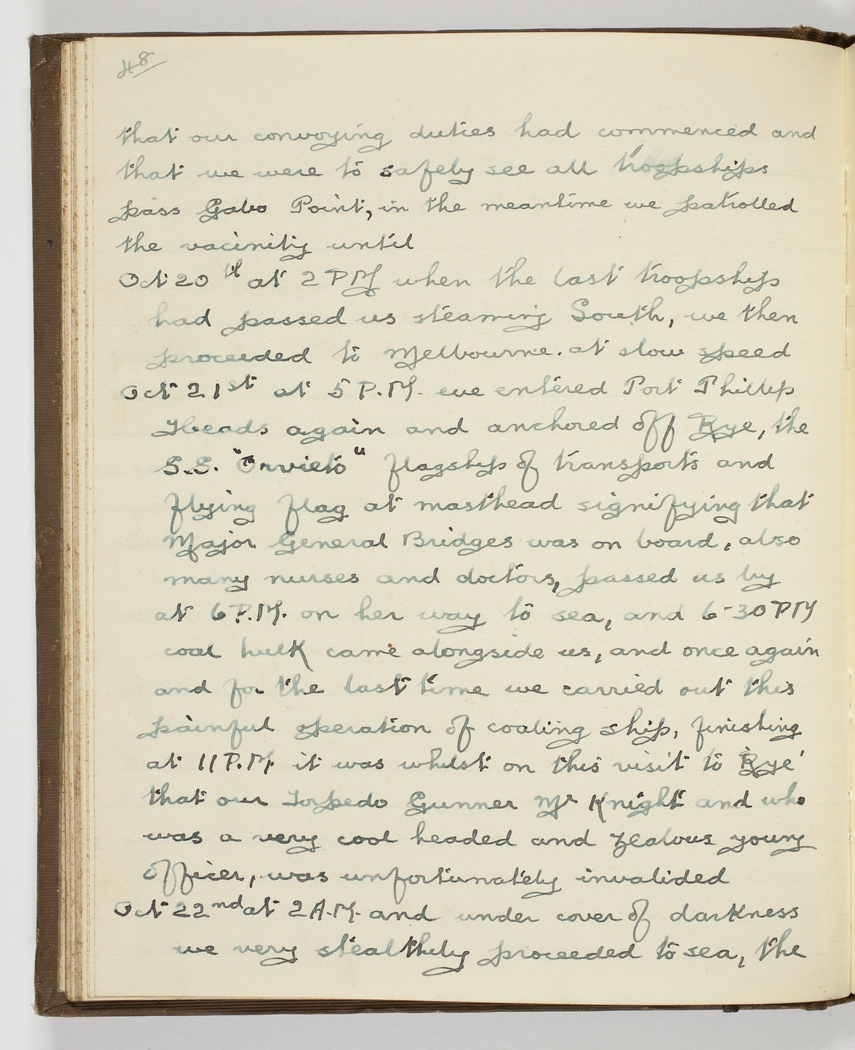 48
that our convoying duties had commenced and
that we were to safely see all troopships
pass Gabo Point, in the meantime we patrolled
the vacinity until
Oct 20th at 2 PM when the last troopship
had passed us steaming South, we then
proceeded to Melbourne. at slow speed
Oct 21st at 5 P.M. we entered Port Phillip
Heads again and anchored off Rye, the
S.S. "Orvieto" flagship of transports and
flying flag at masthead signifying that
Major General Bridges was on board, also
many nurses and doctors, passed us by
at 6 P.M. on her way to sea, and 6-30 PM
coal hulk came alongside us, and once again
and for the last time we carried out this
painful operation of coaling ship, finishing
at 11 P.M. it was whilst on this visit to Rye'
that our Torpedo Gunner Mr Knight and who
was a very cool headed and zealous young
officer, was unfortunately invalided
Oct 22nd at 2 A.M. and under cover of darkness
we very stealthily proceeded to sea, the